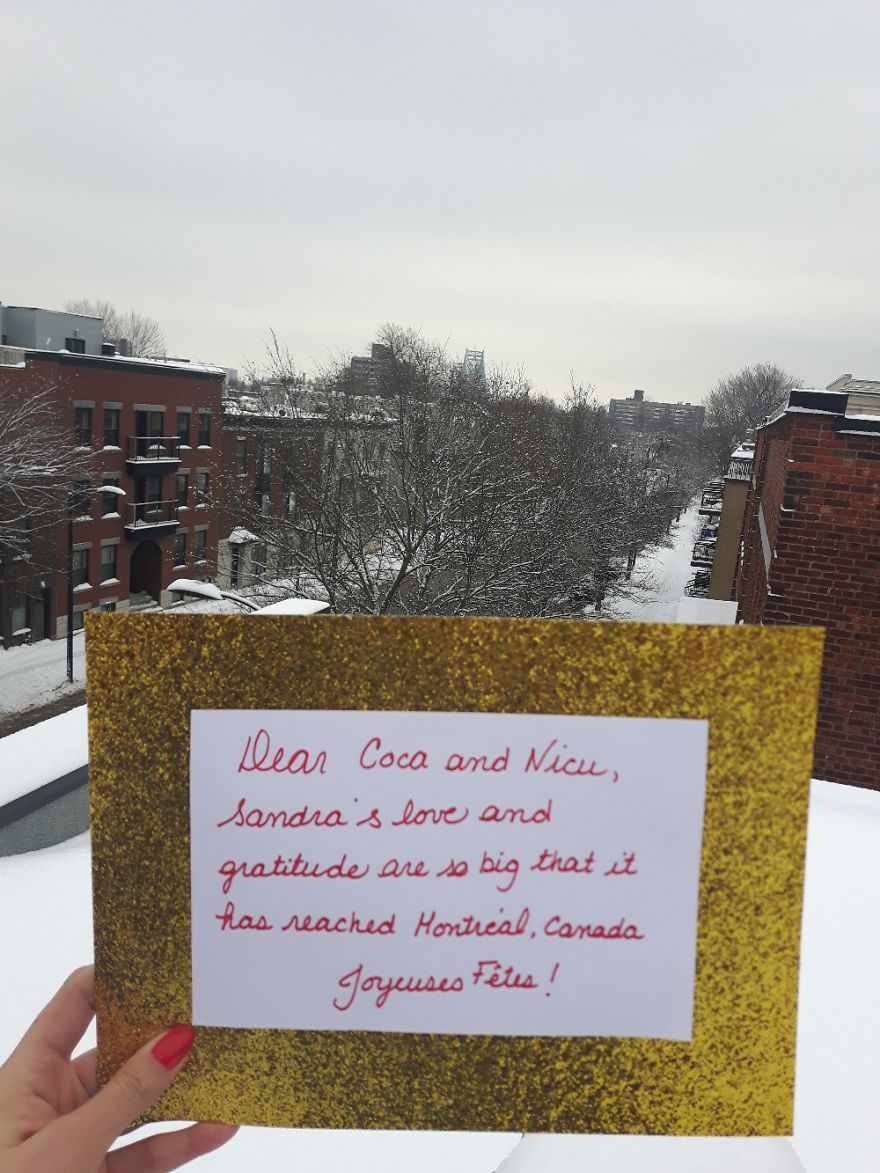 Dear Coca and Nicu,
Sandra's love and
gratitude are so big that it
has reached Montréal, Canada
Joyeuses Fêtes!